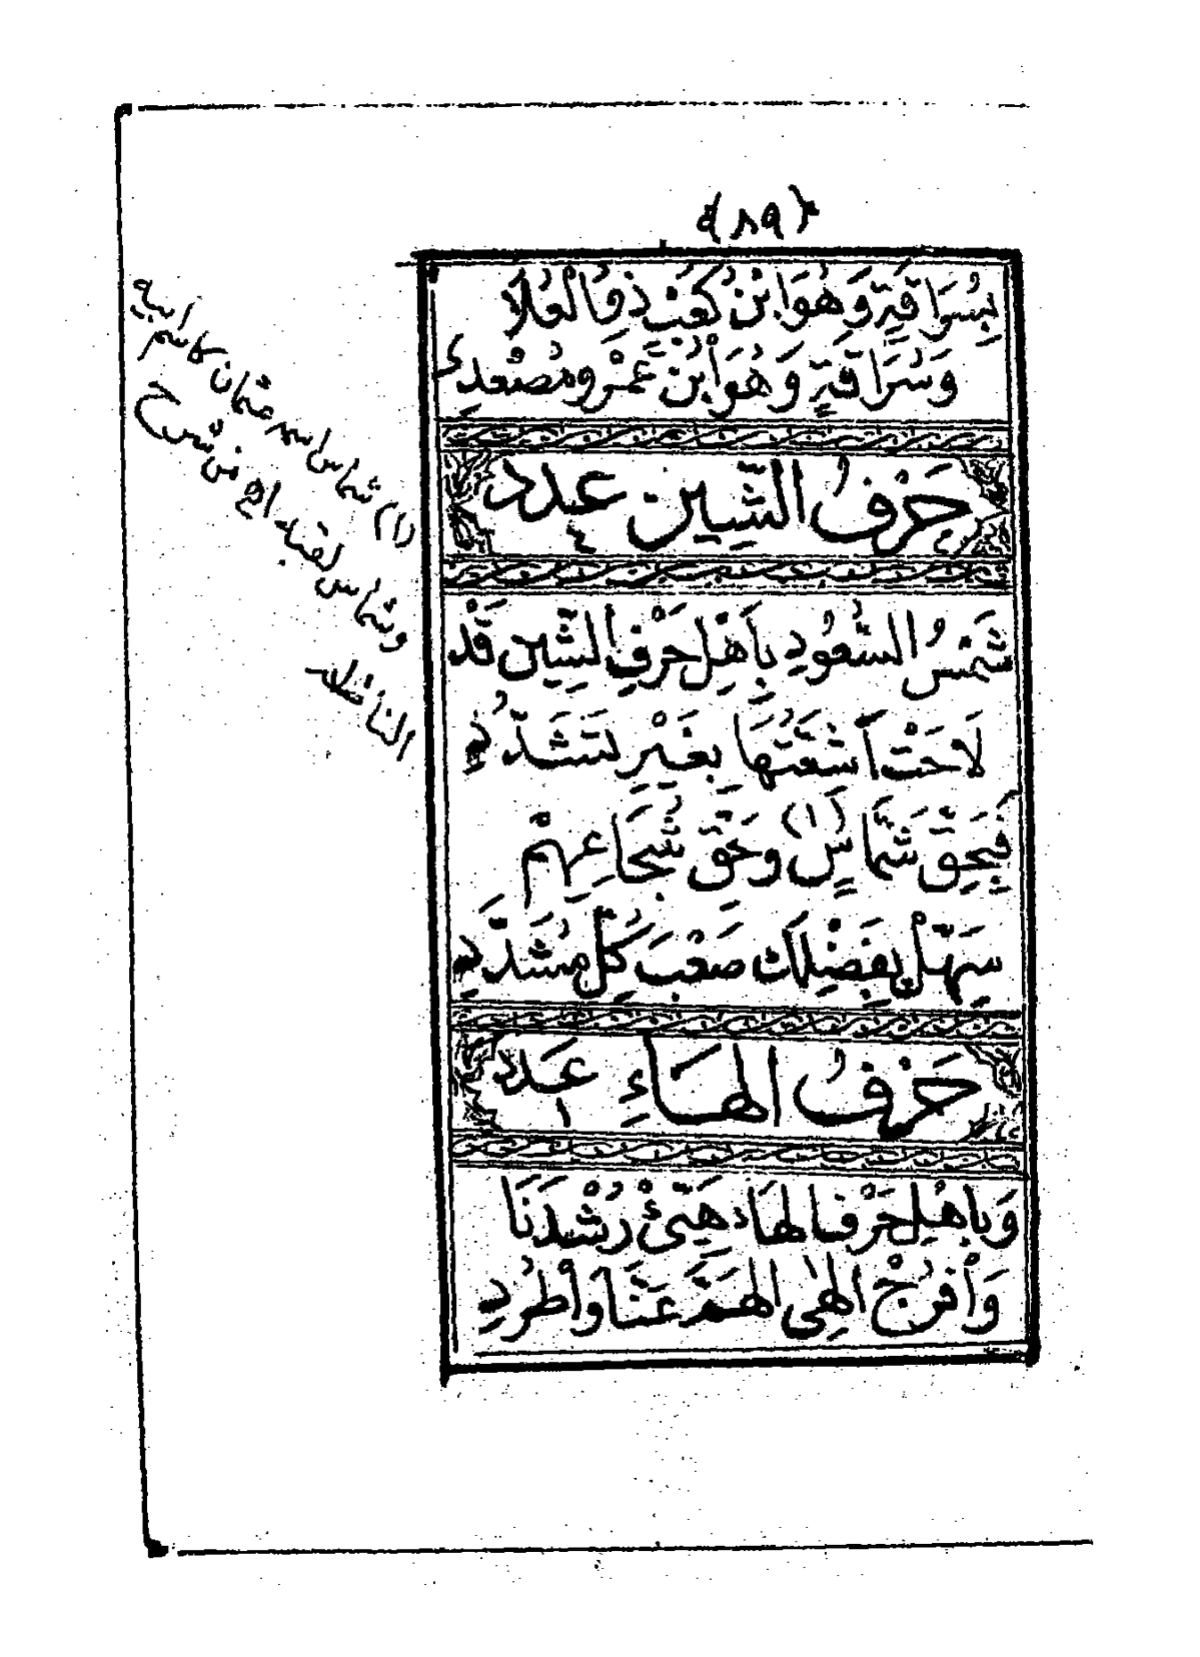 ﴿٨٩﴾
بِسُرَاقَةٍ وَهُوَ ابْنُ كَعْبٍ ذُو الْعُلَا
وَسُرَاقَةٍ وَهُوَ ابْنُ عَمْرٍو مُصْعِدِ
حَرْفُ الشِّينِ عدد ٤
شَمْسُ السُّعُودِ بِأَهْلِ حَرْفِ الشِّينِ قَدْ
لَاحَتْ أَشِعَّتُهَا بِغَيْرِ تَشَدُّدِ
فَبِحَقِّ شَمَّاسٍ (١) وَحَقِّ شُجَاعِهِمْ
سَهِّلْ بِفَضْلِكَ صَعْبَ كُلِّ مُشَدَّدِ
حَرْفُ الهَاءِ عَدد ١
وَبِأَهْلِ حَرْفِ الهَاءِ هَيِّئْ رُشْدَنَا
وَافْرُجْ إِلٰهِي الهَمَّ عَنَّا وَاطْرُدِ
(١) شماس اسمه عثمان كاسم ابيه
وشماس لقبه اهـ من شرح
الناظم